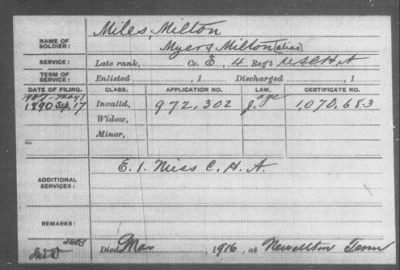 NAME OF SOLDIER: Miles, Milton
Myers Milton (alias)
SERVICE: Late rank, Co. E, 4 Reg't U S C H A
TERM OF SERVICE: Enlisted , 1 Discharged , 1
DATE OF FILING. CLASS. APPLICATION NO. LAW. CERTIFICATE NO.
1890 Sep. 17 Invalid, 972,302 J. age 1,070,683
Widow,
Minor,
ADDITIONAL SERVICES: E. 1. Miss C. H. A.
REMARKS:
Died Mar , 1916, at Tenn